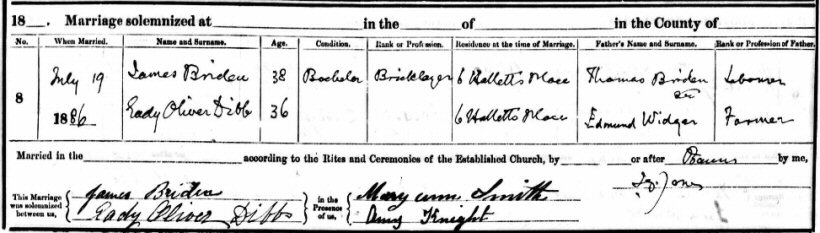 18__. Marriage solemnized at ______ in the ______ of ______ in the County of ______
No. When Married. Name and Surname. Age. Condition. Rank or Profession. Residence at the time of Marriage. Father's Name and Surname. Rank or Profession of Father.
July 19 James Briden 38 Bachelor Bricklayer 6 Halletts Place Thomas Briden Labourer
8
1886 Eady Oliver Dibb 36 6 Halletts Place Edmund Widger Farmer
Married in the ______ according to the Rites and Ceremonies of the Established Church, by ______ or after Banns by me,
This Marriage was solemnized between us, James Briden in the Presence of us, Mary Ann Smith
Eady Oliver Dibbs Amy Knight